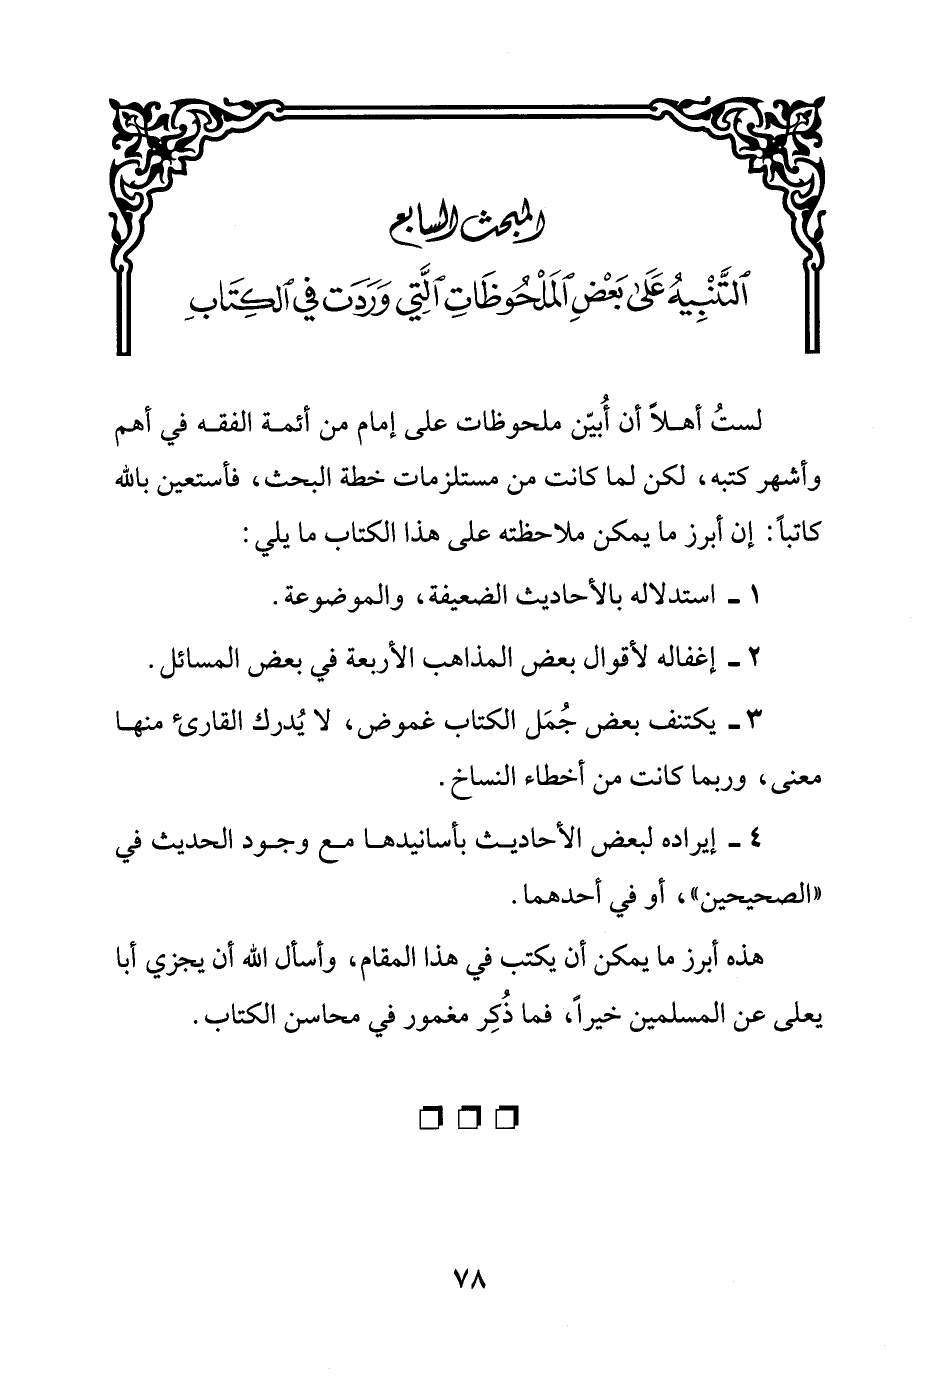 المبحث السابع
ٱلتَّنْبِيهُ عَلَىٰ بَعْضِ ٱلمَلْحُوظَاتِ ٱلَّتِي وَرَدَت فِي ٱلكِتَابِ
لستُ أهـلاً أن أُبيّن ملحوظات على إمام من أئمـة الفقـه في أهم
وأشهر كتبه، لكن لما كانت من مستلزمات خطة البحث، فأستعين بالله
كاتباً: إن أبرز ما يمكن ملاحظته على هذا الكتاب ما يلي:
١ ـ استدلاله بالأحاديث الضعيفة، والموضوعة.
٢ ـ إغفاله لأقوال بعض المذاهب الأربعة في بعض المسائل.
٣ ـ يكتنف بعض جُمَل الكتاب غموض، لا يُدرك القارئ منهـا
معنى، وربما كانت من أخطاء النساخ.
٤ ـ إيراده لبعض الأحاديـث بأسانيدهـا مـع وجـود الحديث في
«الصحيحين»، أو في أحدهما.
هذه أبرز ما يمكن أن يكتب في هذا المقام، وأسأل الله أن يجزي أبا
يعلى عن المسلمين خيراً، فما ذُكِر مغمور في محاسن الكتاب.
٧٨